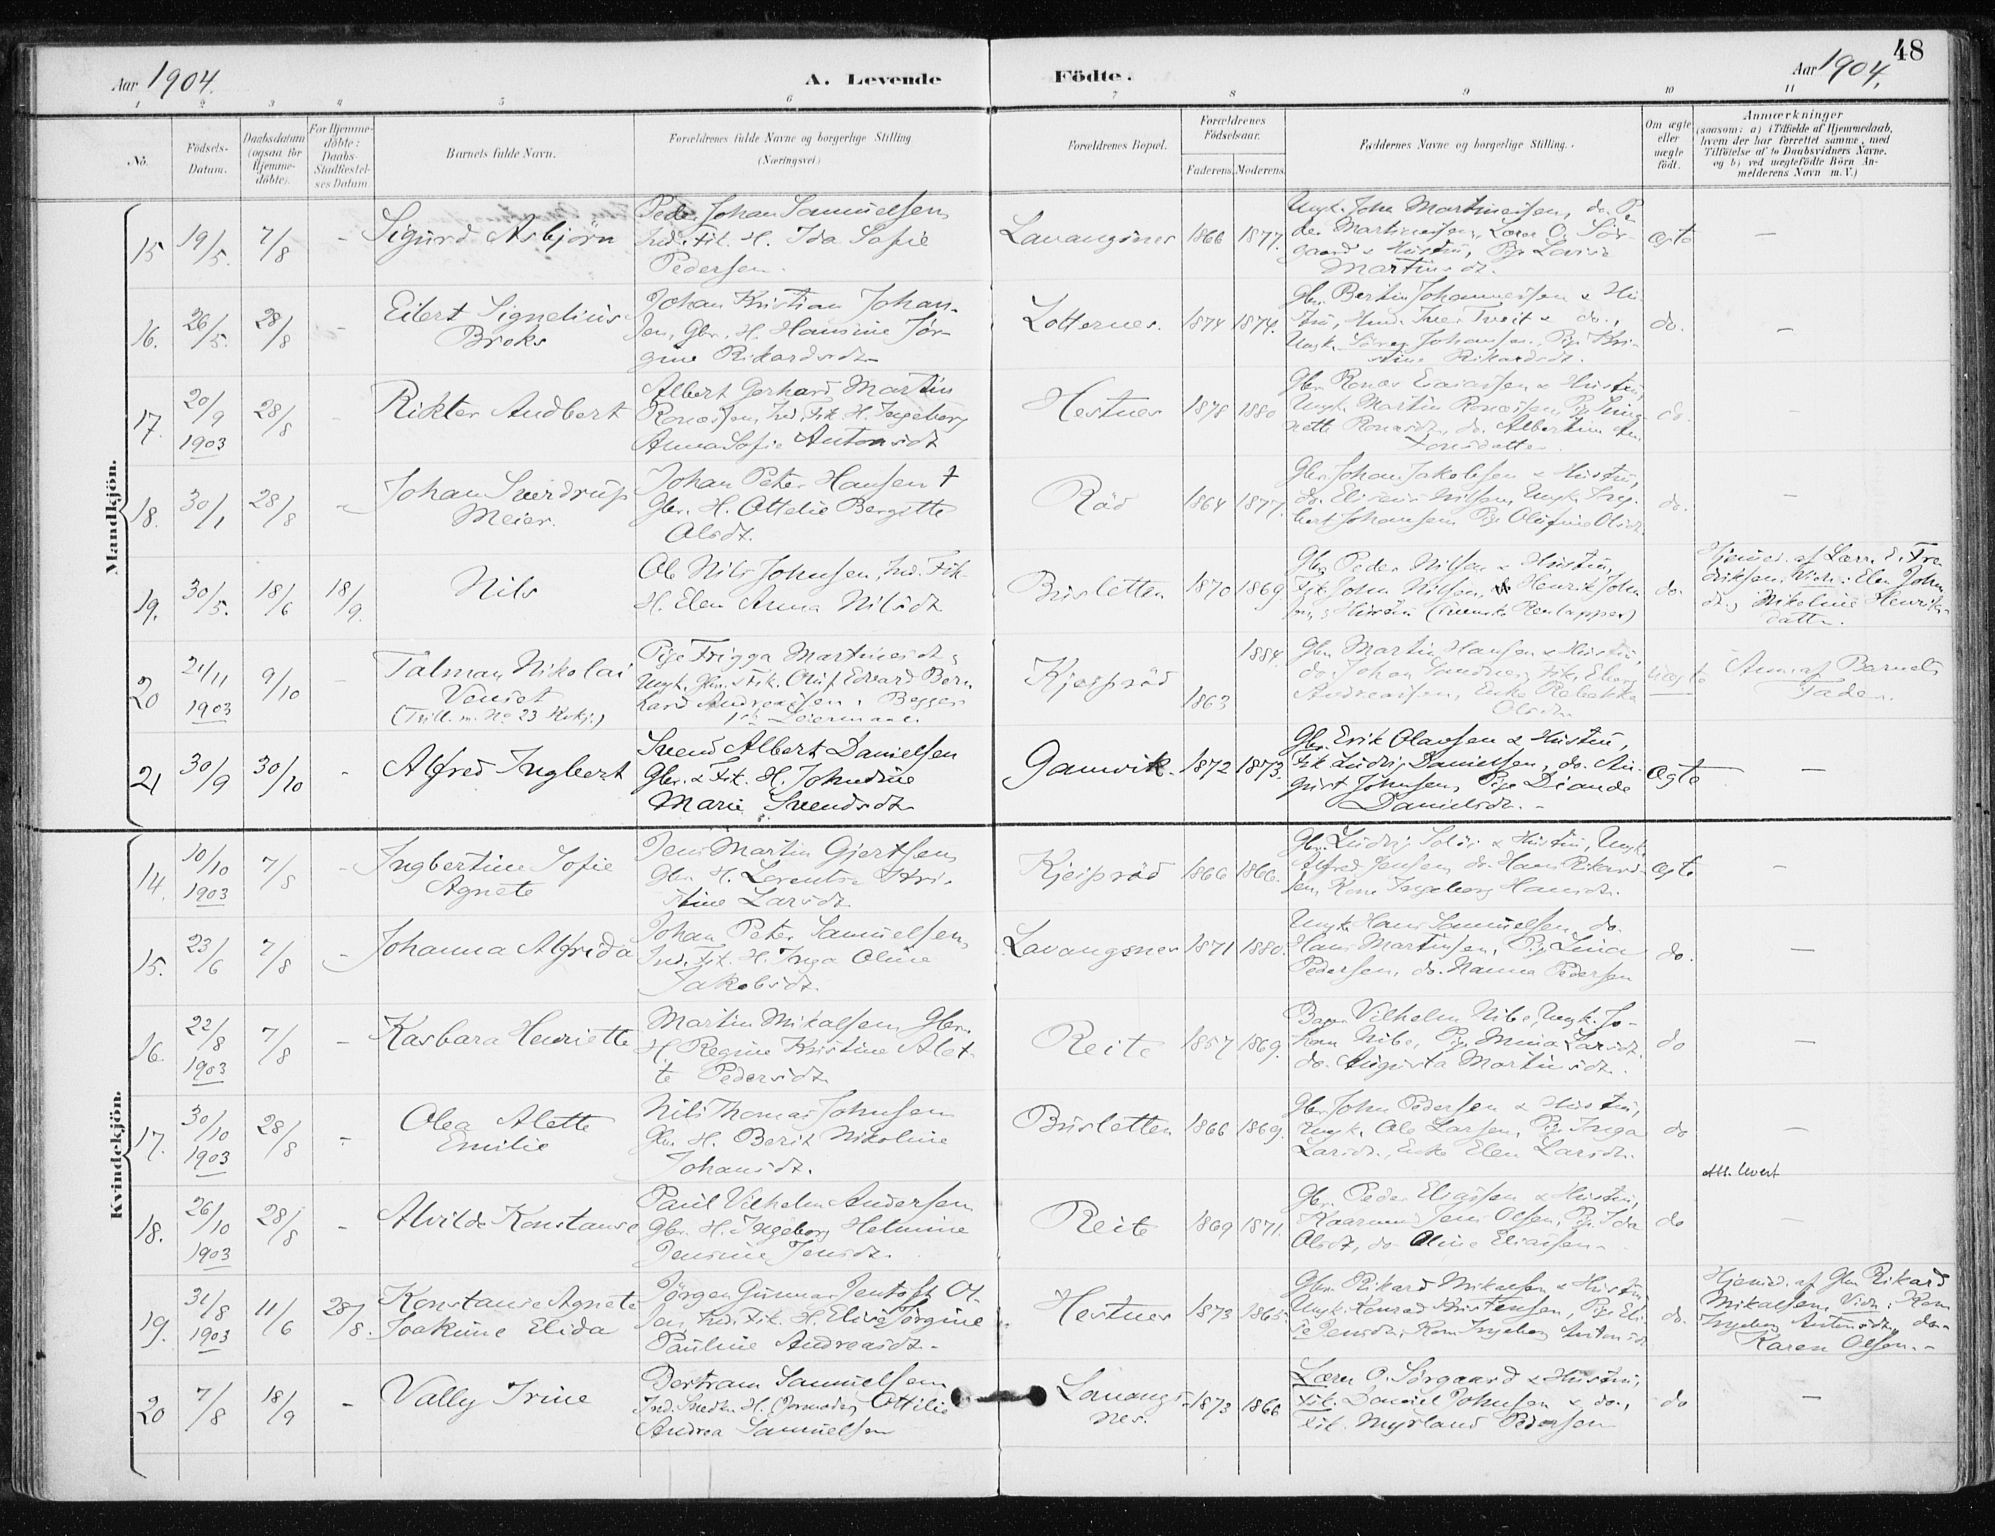 48
Aar 1904. A. Levende Födte. Aar 1904.
1 2 3 4 5 6 7 8 9 10 11
No.
Födsels-
Datum.
Daabsdatum
(ogsaa for
Hjemme-
döbte).
For Hjemme-
döbte:
Daabs-
Stadfæstel-
ses Datum
Barnets fulde Navn.
Forældrenes fulde Navne og borgerlige Stilling
(Næringsvei)
Forældrenes Bopæl.
Forældrenes
Födselsaar.
Faderens. Moderens.
Faddernes Navne og borgerlige Stilling.
Om ægte
eller
uægte
födt.
Anmærkninger
(saasom: a) i Tilfælde af Hjemmedaab,
hvem der har forrettet samme, med
Tilföielse af to Daabsvidners Navne,
og b) ved uægtefödte Börn An-
melderens Navn m. V.)
Mandkjön.
15 19/5. 7/8 - Sigurd Asbjörn
Peder Johan Samuelsen,
Ind. Fik. H. Ida Sofie
Pedersen.
Lavangsnes 1866 1877.
Ungk. John Martinessen, do. Pe
der Martinessen, Lærer O. Sör-
gaard & Hustru, Pige Lovise
Martinsdt.
ægte —
16. 26/5. 28/8 - Eilert Signelius
Broks
Johan Kristian Johan-
sen, Gbr. H. Hansine Jör-
gine Rikardsdt.
Lotternes. 1874 1874.
Gbr. Bertin Johannessen & Hu
stru, Tveit & do.,
Ungk. Sören Johansen, Pige Kri-
stine Rikardsdt.
do. —
17. 20/9 1903 28/8 - Rikter Audbert
Albert Gerhard Martin
Ronæssen, Ind. Fik. H. Ingeborg
Anna Sofie Antonsdt
Hestnes 1878 1880
Gbr. Ronæs Esaiassen & Hustru,
Ungk. Martin Ronæssen, Pige
nette Ronæsdt., do. Albertine An
tonsdatter.
do. —
18. 30/1 28/8 - Johan Sverdrup
Meier.
Johan Peter Hansen †
Gbr. H. Ottelie Bergitte
Olsdt.
Röd 1864 1877.
Gbr. Johan Jakobsen & Hustru,
do. Nilssen, Ungk. Ing-
bert Johansen, Pige Olufine Olsdt.
do. —
19. 30/5. 18/6 18/9. Nils
Ole Nils Johnsen, Ind. Fik.
H. Elen Anna Nilsdt
Busletten 1870 1869
Gbr. Peder Nilsen & Hustru,
Fik. John Nilsen, Henrik John
sen, & Hustru (svenske Renlapper)
do.
Hjemed. af Lærer d. Fre
driksen, Vidn: Elen John
dt., Nikoline Henriks-
datter.
20 21/11 1903 9/10 - Talman Nikolai
Venset
(Tvill. m. No 23 Kvkj.)
Pige Frigga Martinesdt.,
Ungk. Gbr. & Fik. Oluf Edvard Bern
hard Andreassen. Begges
1ste Leiermaal.
Kjeipröd 1863 1884.
Gbr. Martin Hansen & Hustru,
do. Johan Sandnes, Fik. Eberg
Andreassen, Enke Rebekka
Olsdt.
uægte
Anm. af Barnets
Fader.
21 30/9 30/10 - Alfred Ingbert
Svend Albert Danielsen
Gbr. & Fik. H. Johndine
Marie Svendsdt.
Gamvik. 1872 1873.
Gbr. Erik Olavsen & Hustru,
Fik. Ludvig Danielsen, do. Au-
gust Johnsen, Pige Diande
Danielsdt.
ægte —
Kvindekjön.
14. 10/10 1903 7/8 - Ingbertine Sofie
Agnete
Jens Martin Gjertsen,
Gbr. H. Lorentse Kri-
stine Larsdt.
Kjeipröd 1866 1866.
Gbr. Ludvig & Hustru, Ungk.
Alfred Jensen, do. Hans Rikard-
sen, Kone Ingeborg Hansdt.
ægte —
15. 23/6 7/8 - Johanna Alfrida
Johan Peter Samuelsen,
Ind. Fik. H. Inga Oline
Jakobsdt.
Lavangsnes 1871 1880.
Ungk. Hans Samuelsen, do.
Hans Martinsen, Pige Lina
Pedersen, do. Nanna Pedersen
do. —
16. 22/8 1903 7/8 - Kasbara Henriette
Martin Mikalsen, Gbr.
H. Regine Kristine Alet-
te Pedersdt.
Reite 1857 1869.
Vilhelm Nibe, Ungk. Jo-
han Nibe, Pige Mina Larsdt.
do. Augusta Martinsdt.
do —
17. 30/10 1903 28/8 - Olea Alette
Emilie
Nils Thomas Johnsen
Gbr. H. Berit Nikoline
Johansdt.
Busletten 1866 1869.
Gbr. John Pedersen & Hustru,
Ungk. Ole Larsen, Pige Inga
Larsdt., Enke Elen Larsdt.
do —
Att. levert
18. 26/10 1903 28/8 - Alvilde Konstanse
Paul Vilhelm Andersen
Gbr. H. Ingeborg Helmine
Jensine Jensdt.
Reite 1869 1871.
Gbr. Peder Eliassen & Hustru,
Jens Olsen, Pige Ida
Olsdt, do Oline Eliassen.
do —
19. 31/8 1903 11/6 28/8. Konstanse Agnete
Joakime Elida
Jörgen Gunnar Jentoft Ol-
sen, Ind. Fik. H. Elise Jörgine
Pauline Andreasdt.
Hestnes 1873 1865.
Gbr. Rikard Mikalsen & Hustru
Ungk. Konrad Kristensen, Pige Eli-
se Jensdt., Kone Ingeborg Antonsdt
do.
Hjemd. af Gbr. Rikard
Mikalsen. Vidn: Kone
Ingeborg Antonsdt., do.
Karen Olsen.
20 7/8 18/9 - Vally Irine
Bertram Samuelsen
Ind. Snedker H. (Jormoder) Ottilie
Andrea Samuelsen
Lavangs
nes. 1873 1866
Lærer O. Sörgaard & Hustru,
Fik. Daniel Johnsen & do.,
Fik. Myrland Pedersen
do —